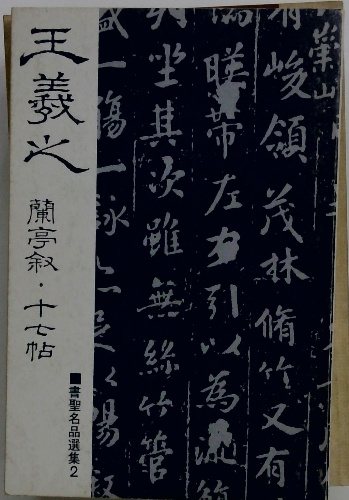 王羲之
蘭亭叙・十七帖
■書聖名品選集2
山
有峻領茂林脩竹又有
暎帶左右引以為流
列坐其次雖無絲竹管
一觴一詠亦足以暢叙